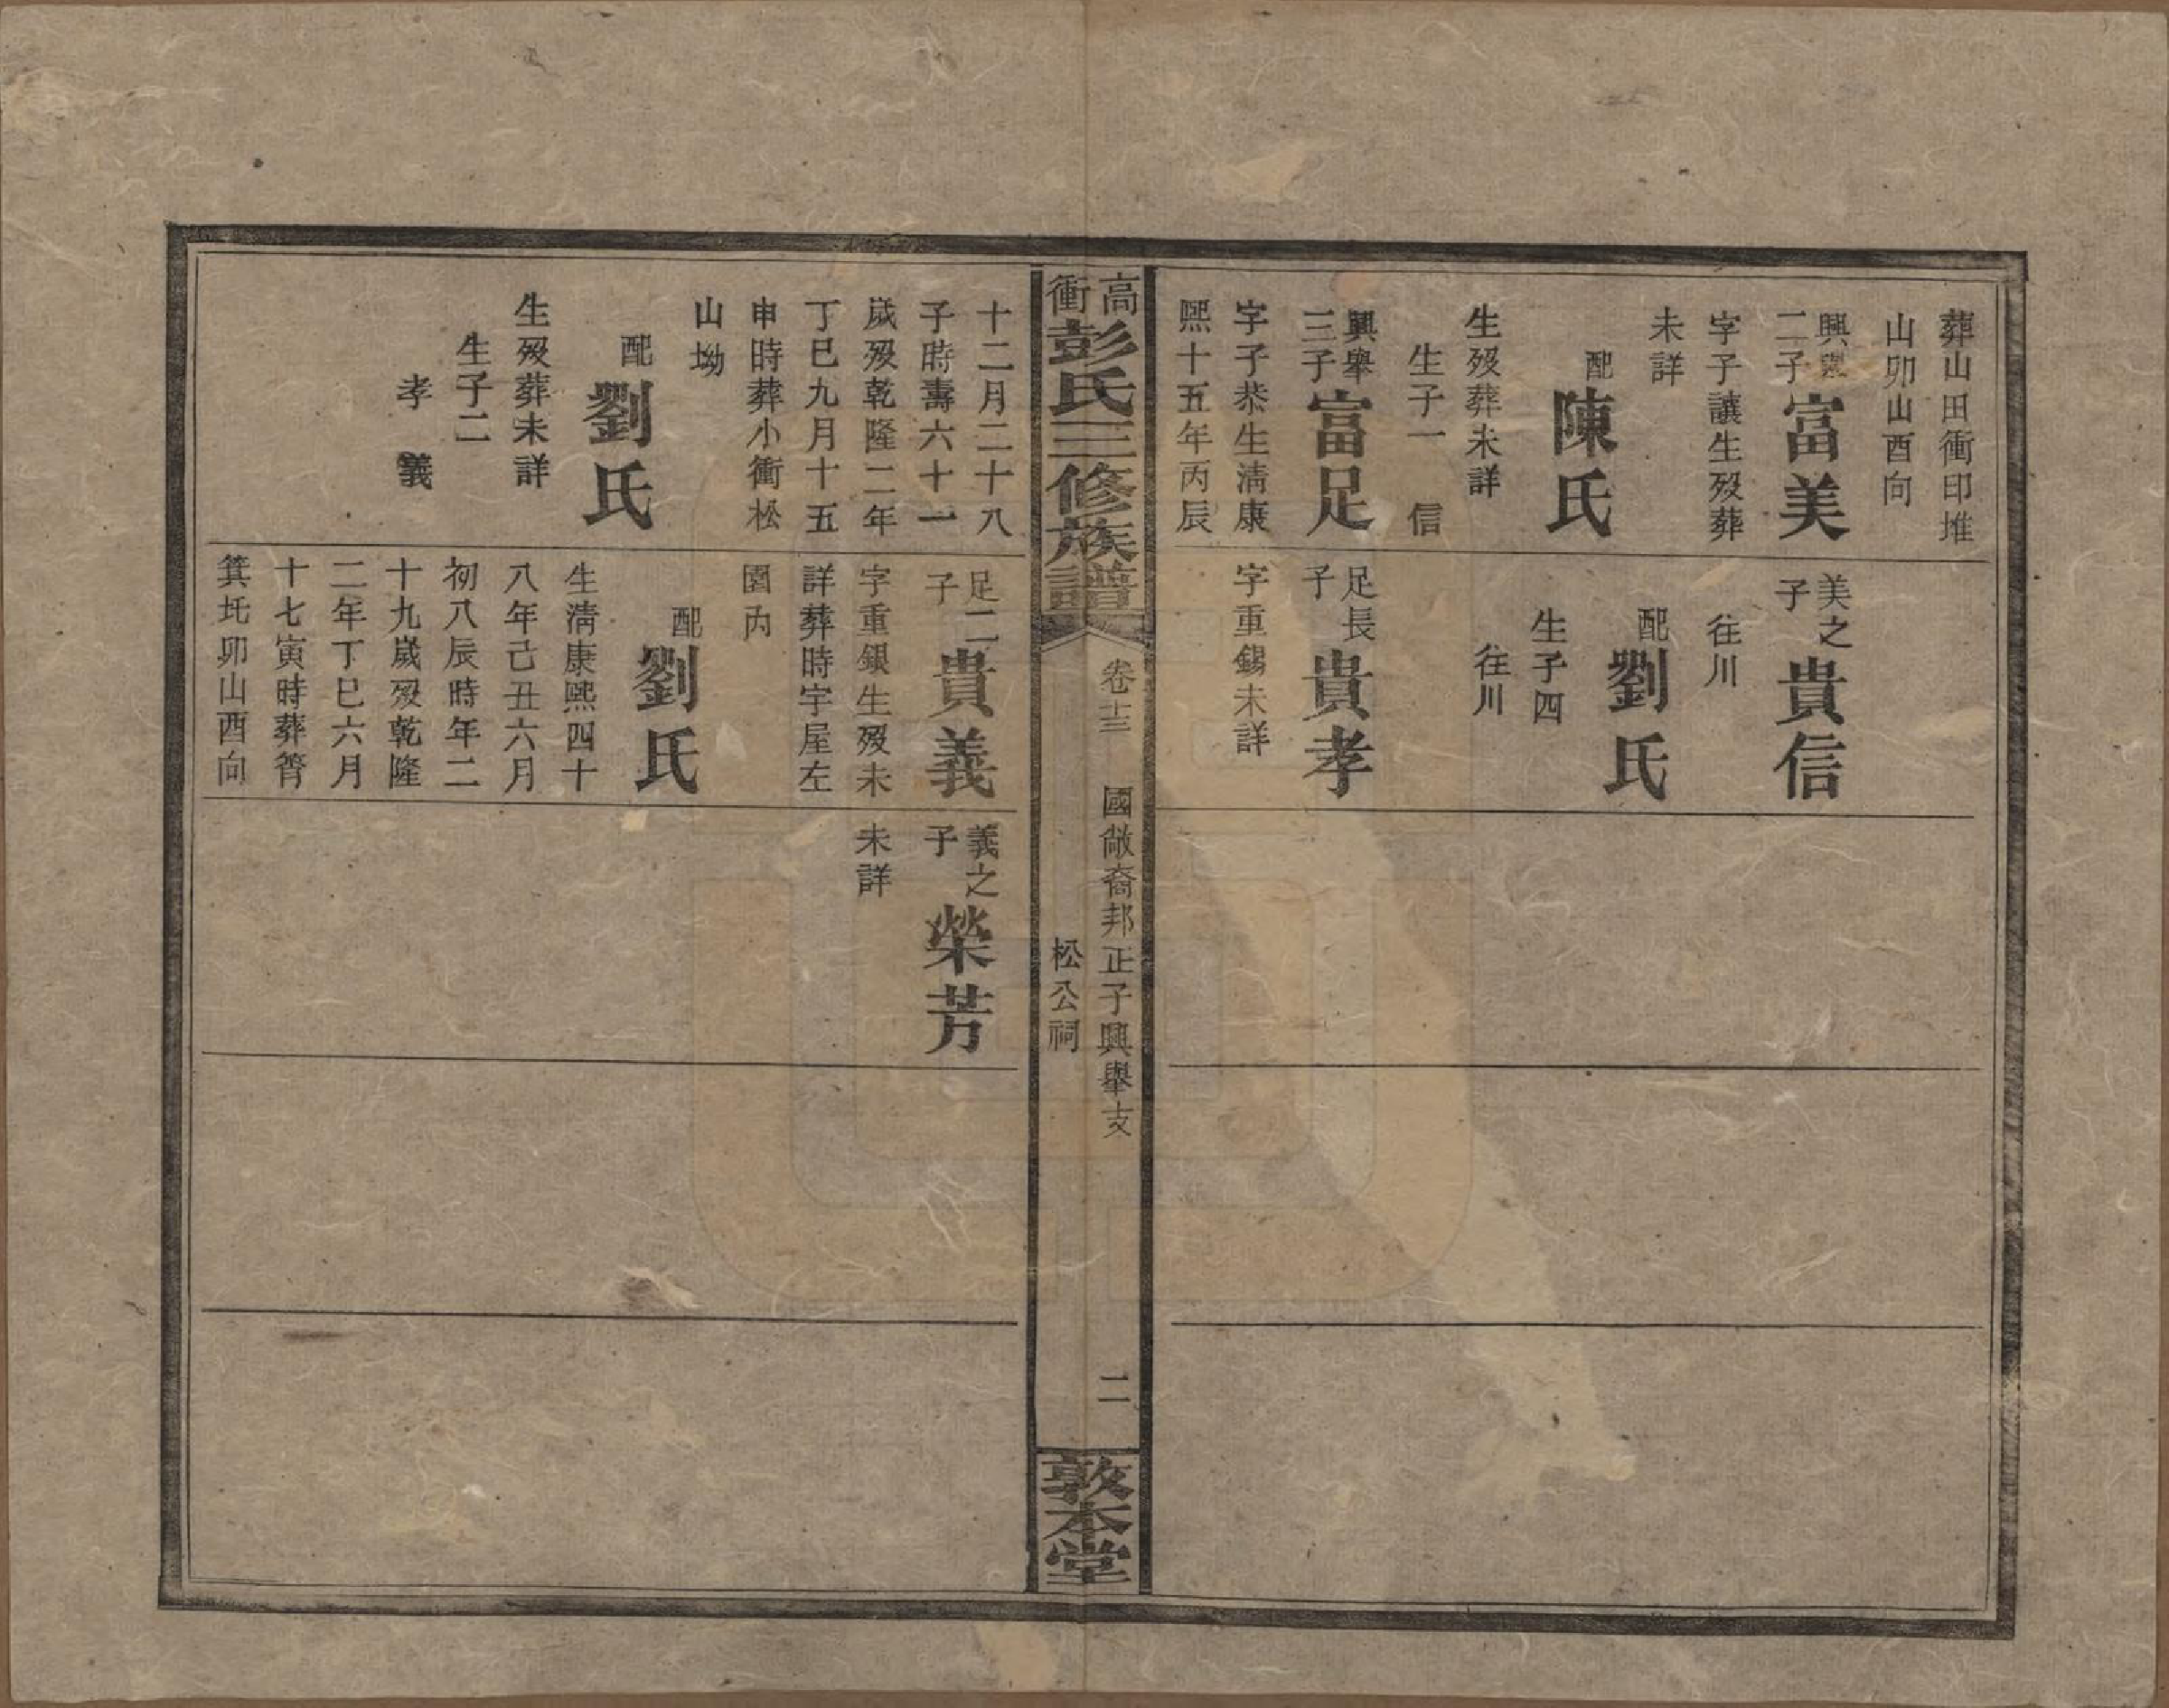 葬山田衝印堆
山卯山酉向
興舉
二子
富美
字子讓生歿葬
未詳
配
陳氏
生歿葬未詳
生子一 信
興舉
三子
富足
字子恭生清康
熙十五年丙辰
美之
子
貴信
往川
配
劉氏
生子四
往川
足長
子
貴孝
字重錫未詳
高衝
彭氏三修族譜
卷十三 國敞裔邦正子興舉支 二
松公祠
敦本堂
十二月二十八
子時壽六十一
歲歿乾隆二年
丁巳九月十五
申時葬小衝松
山坳
配
劉氏
生歿葬未詳
生子二
孝 義
足二
子
貴義
字重銀生歿未
詳葬時宇屋左
園內
配
劉氏
生淸康熙四十
八年己丑六月
初八辰時年二
十九歲歿乾隆
二年丁巳六月
十七寅時葬筲
箕坵卯山酉向
義之
子
榮芳
未詳